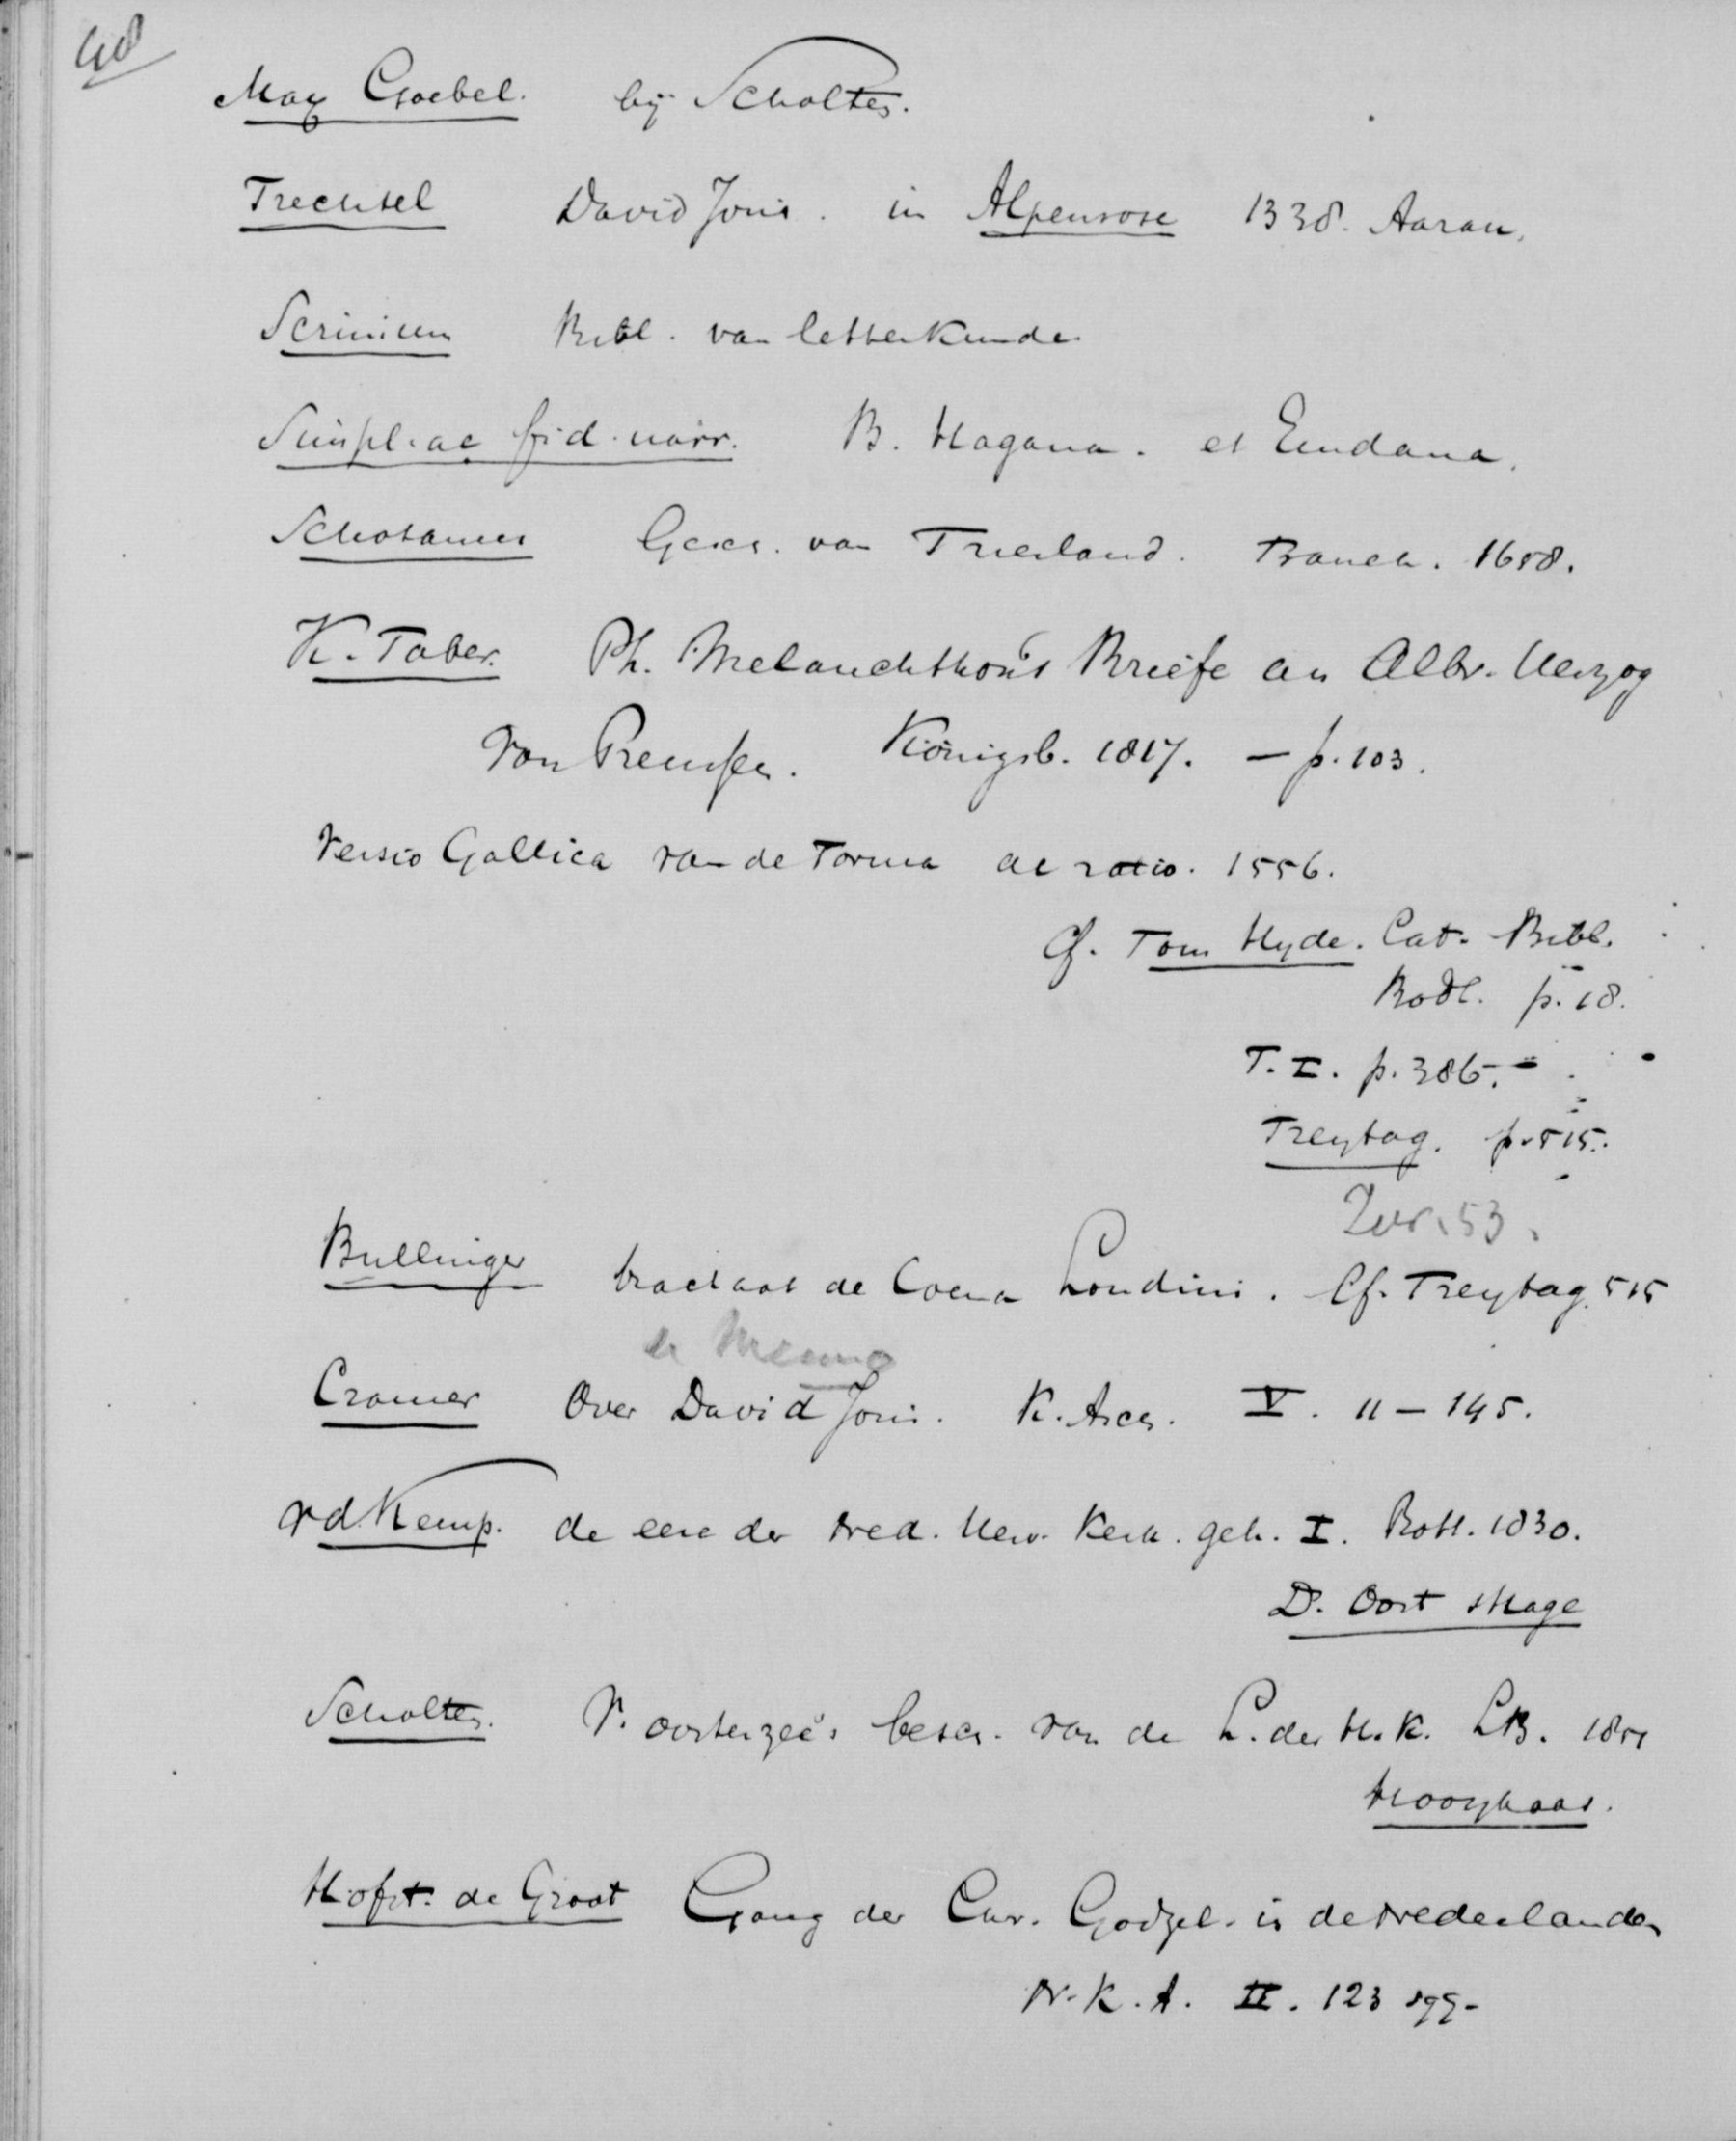 40
Max Goebel. bij Scholten.
Trechsel David Joris. in Alpenrose 1338. Aarau.
Scrinium Bibl. van letterkunde
Simpl. ac fid. narr. B. Hagana. et Emdana.
Schotanus Gesch. van Friesland. Franek. 1658.
K. Faber. Ph. Melanchthon's Briefe an Albr. Herzog
von Preussen. Königsb. 1817. — p. 103.
Versio Gallica van de Forma ac ratio. 1556.
Cf. Tom Hyde. Cat. Bibl.
Bodl. p. 18.
T. I. p. 386.
Freytag. p. 515.
53.
Bullinger tractaat de Coena Londini. Cf. Freytag. 515
en Menno
Cramer Over David Joris. K. Arch. V. 11 — 145.
v d Kemp. de eere der Ned. Herv. Kerk. geh. I. Rott. 1830.
D. Oort Hage
Scholten. V. Oosterzee's besch. van de L. der H. K. LB. 1851
Hooykaas.
Hofst. de Groot Gang der Chr. Godgel. in de Nederlanden
N. K. A. II. 123 sqq.